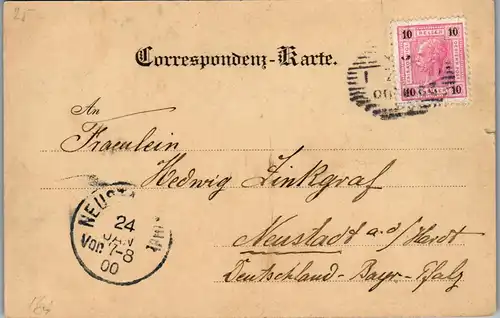 25
Correspondenz-Karte.
10 HELLER 10
10 10
An
Fraeulein
Hedwig Linkgraf
Neustadt a.d/Hardt
Deutschland-Bayr-Pfalz
NEUST
24
JAN
Vor. 7-8
00